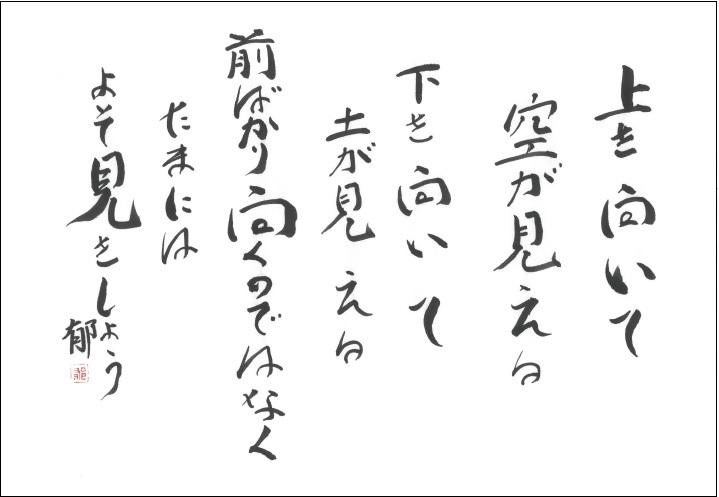 上を向いて
空が見える
下を向いて
土が見える
前ばかり向くのではなく
たまには
よそ見をしょう
郁